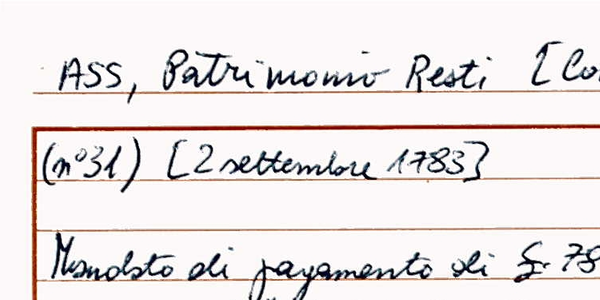 ASS, Patrimonio Resti [Co
(n° 31) [2 settembre 1783]
Mandato di pagamento di £. 78